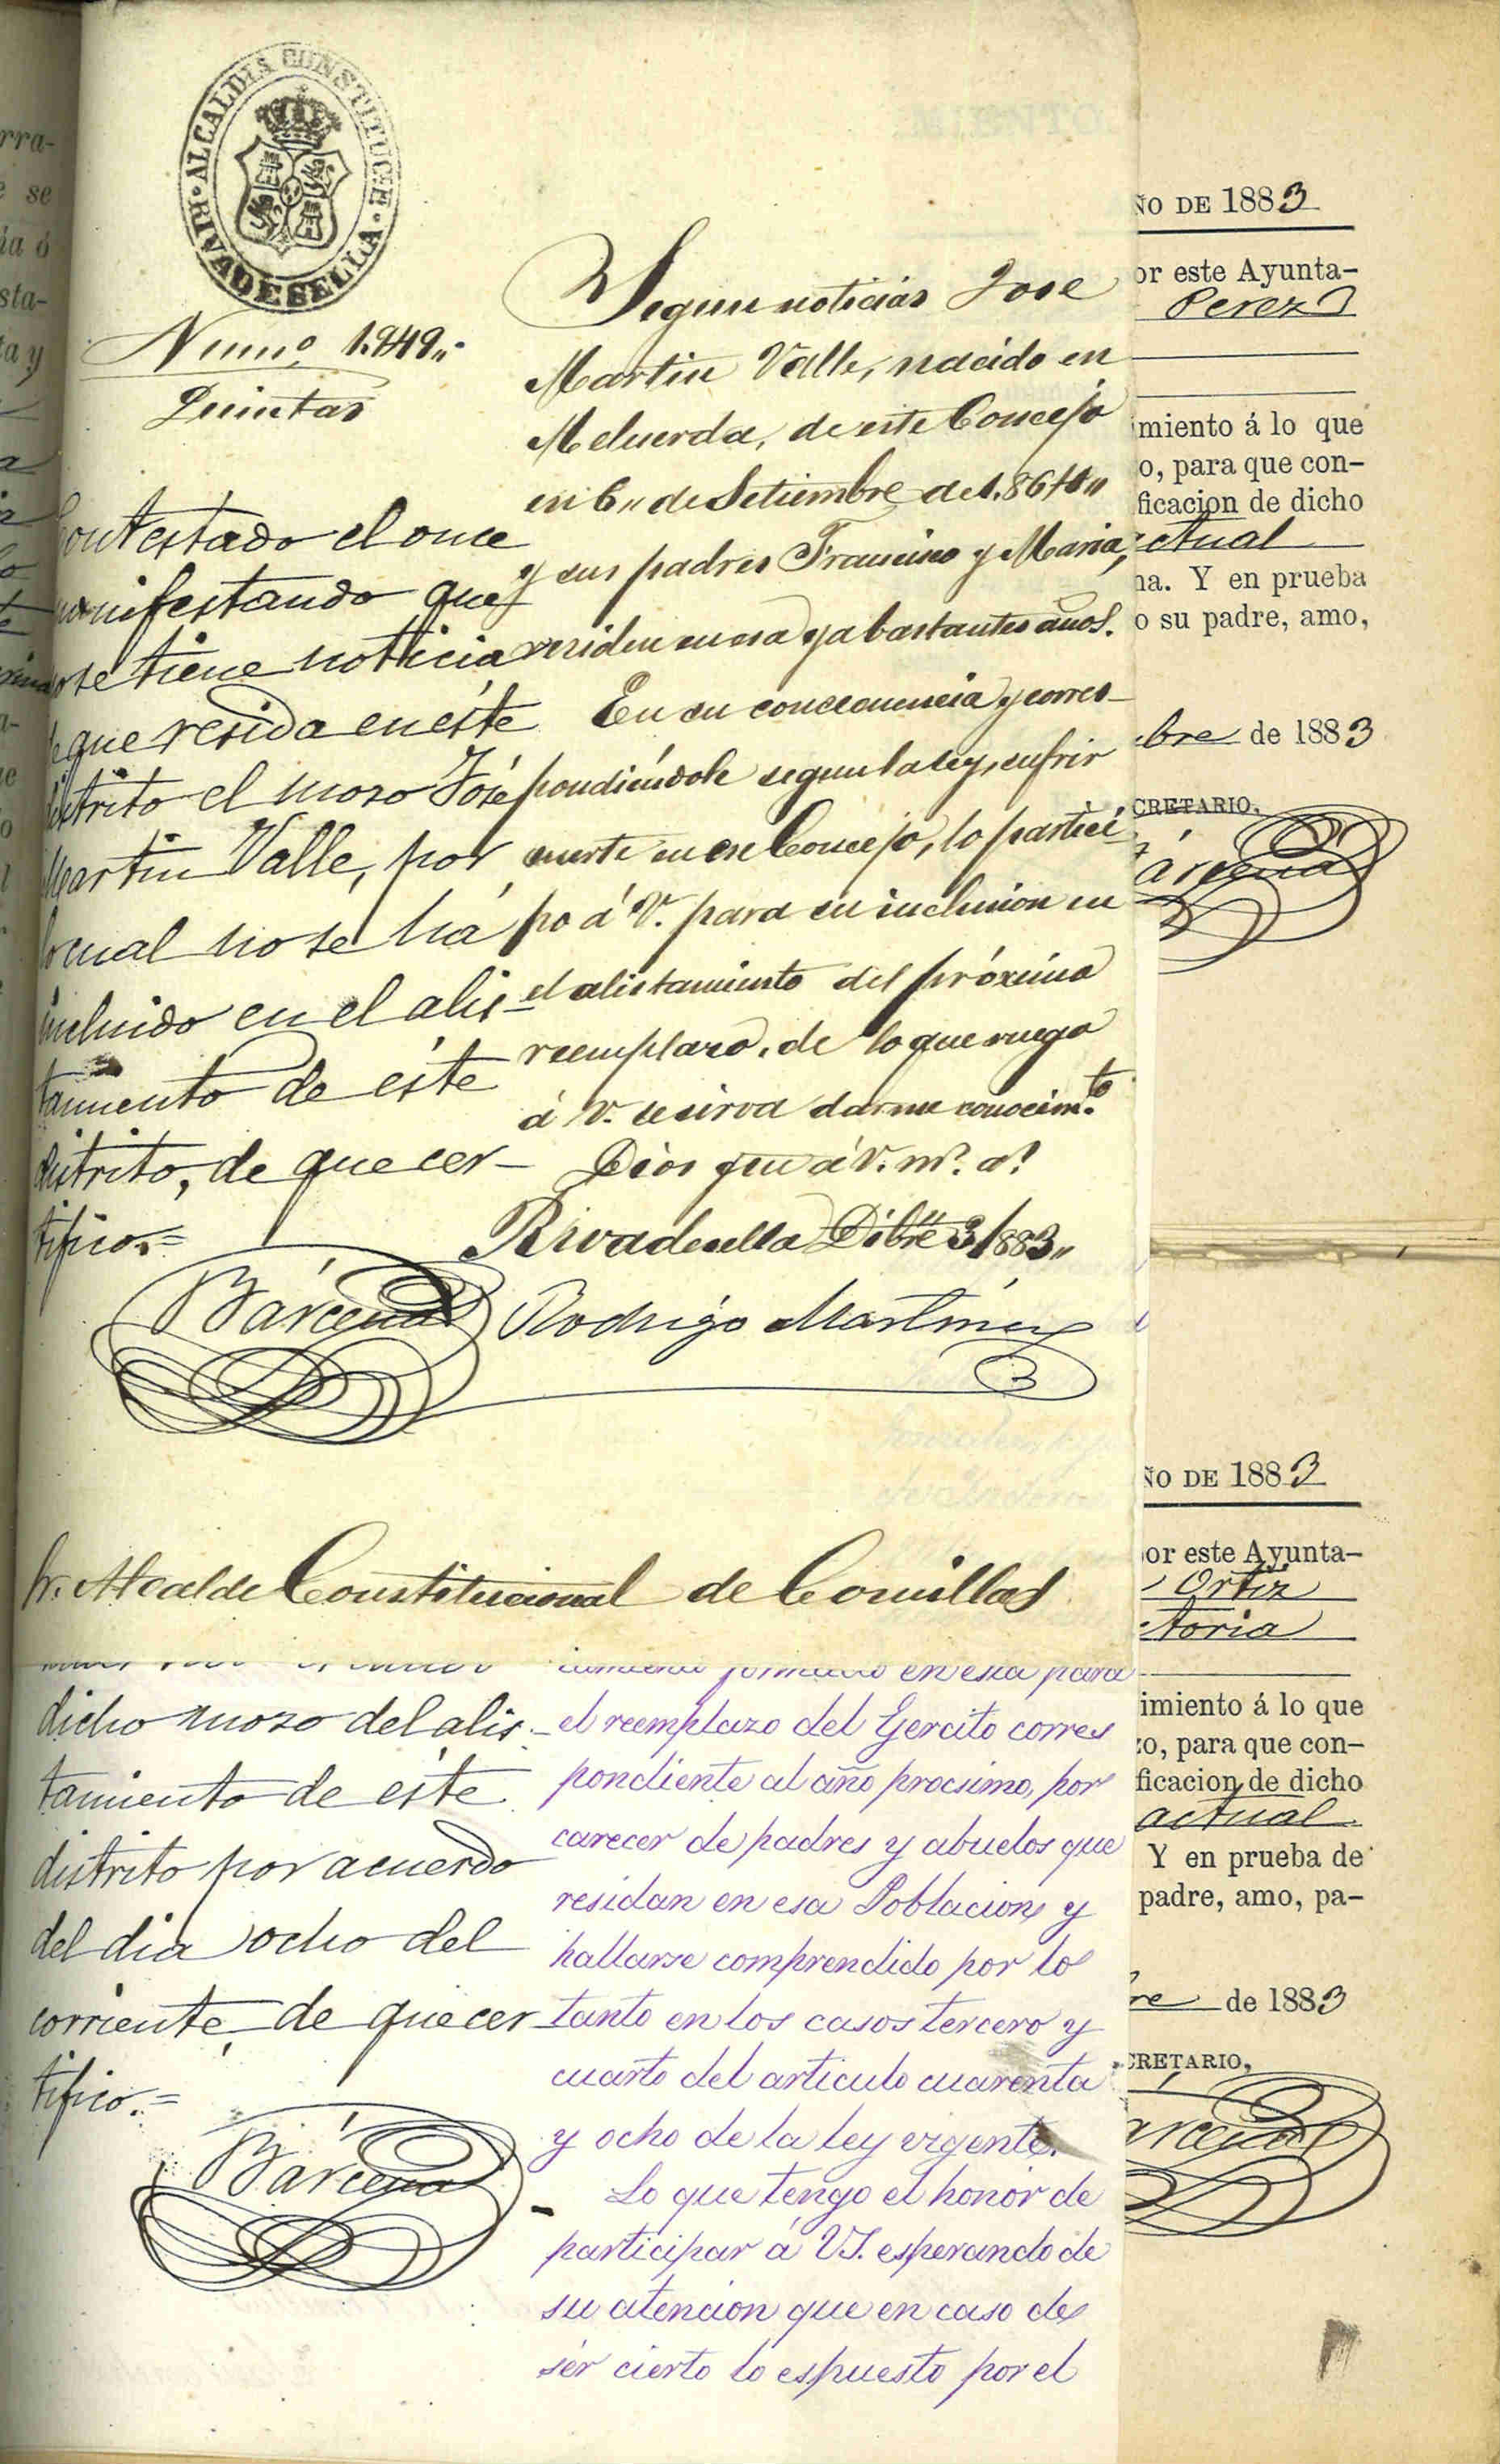 ALCALDIA CONSTITUCE · RIVADESELLA ·
Numo 1.949,,
Quintas
Segun noticias Jose
Martin Valle, nacido en
Meluerda, de este Concejo
en 6,, de Setiembre de 1.864,,
y sus padres Francisco y Maria,
residen en esa ya bastantes años.
En su consecuencia y corres-
pondiéndole segun la ley, sufrir
suerte en ese Concejo, lo partici-
po á V. para su inclusion en
el alistamiento del próximo
reemplazo, de lo que ruego
á V. se sirva darme conocimto.
Dios gue á V. ms. as.
Rivadesella Dibre 3/883,,
Rodrigo Martinez
Contestado el once
manifestando que
no se tiene noticia
de que resida en éste
distrito el mozo José
Martin Valle, por
lo cual no se há
incluido en el alis-
tamiento de éste
distrito, de que cer-
tifico.=
Bárcena
Sr. Alcalde Constitucional de Comillas
dicho mozo del alis-
tamiento de éste
distrito por acuerdo
del dia ocho del
corriente, de que cer-
tifico.=
Bárcena
tamiento formado en esa para
el reemplazo del Egercito corres
pondiente al año procsimo, por
carecer de padres y abuelos que
residan en esa Poblacion y
hallarse comprendido por lo
tanto en los casos tercero y
cuarto del articulo cuarenta
y ocho de la ley vigente.
Lo que tengo el honor de
participar á VS. esperando de
su atencion que en caso de
sér cierto lo espuesto por el
ÑO DE 1883
or este Ayunta-
Perez
miento á lo que
o, para que con-
ficacion de dicho
actual
na. Y en prueba
o su padre, amo,
bre de 1883
CRETARIO,
Bárcena
ÑO DE 1883
por este Ayunta-
Ortiz
toria
imiento á lo que
zo, para que con-
ficacion de dicho
actual
Y en prueba de
padre, amo, pa-
re de 1883
CRETARIO,
Bárcena
rra-
e se
ia ó
sta-
ta y